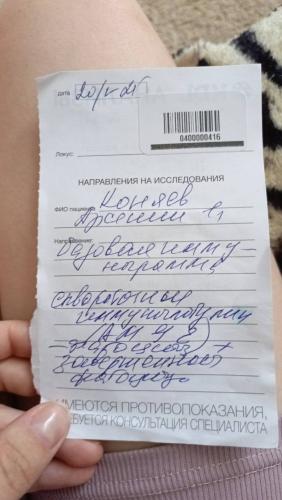 дата 20/V 21
0400000416
Локус:
НАПРАВЛЕНИЯ НА ИССЛЕДОВАНИЯ
ФИО пациента: Коняев
Арсений
Направление:
Базовая имму-
нограмма,
иммуноглобулин
завершенност
фагоцитоз
ИМЕЮТСЯ ПРОТИВОПОКАЗАНИЯ,
ТРЕБУЕТСЯ КОНСУЛЬТАЦИЯ СПЕЦИАЛИСТА